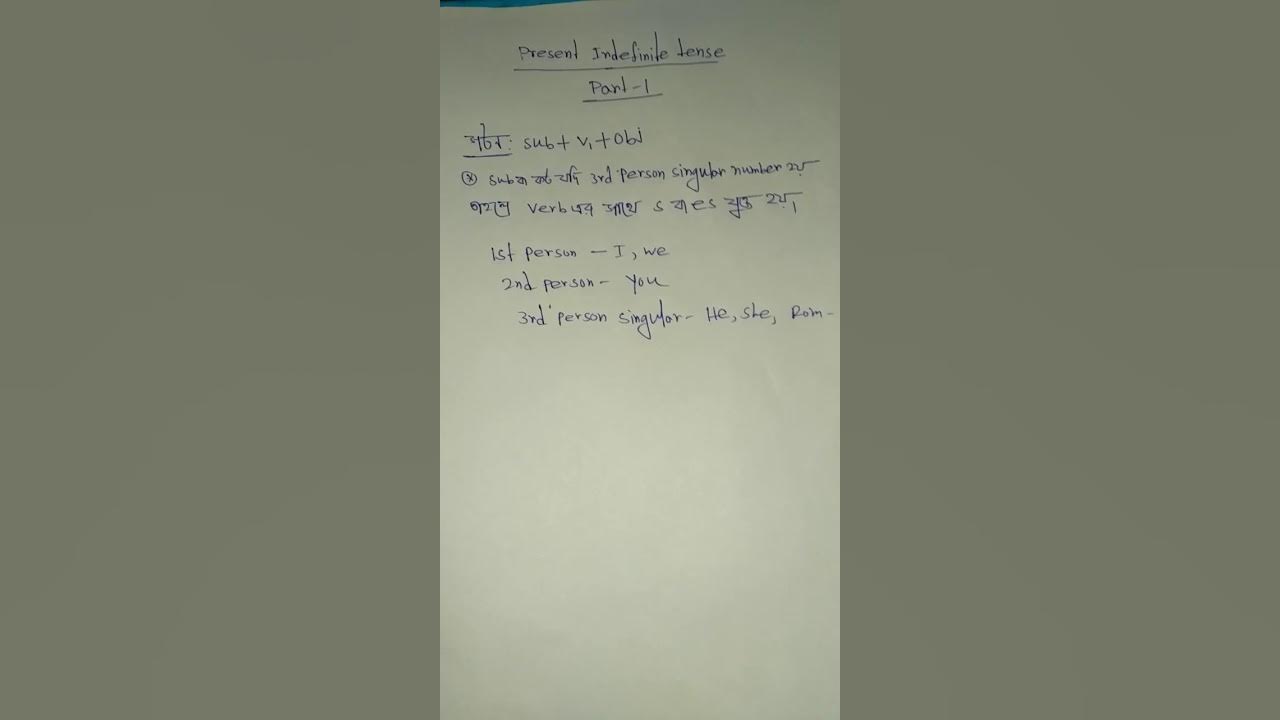 Present Indefinite tense
Part-1
গঠন: sub + V₁ + Obj
sub বা কর্তা যদি 3rd person singular number হয়
তাহলে verb এর সাথে s বা es যুক্ত হয়।
1st person – I, we
2nd person – you
3rd person singular – He, she, Rom –